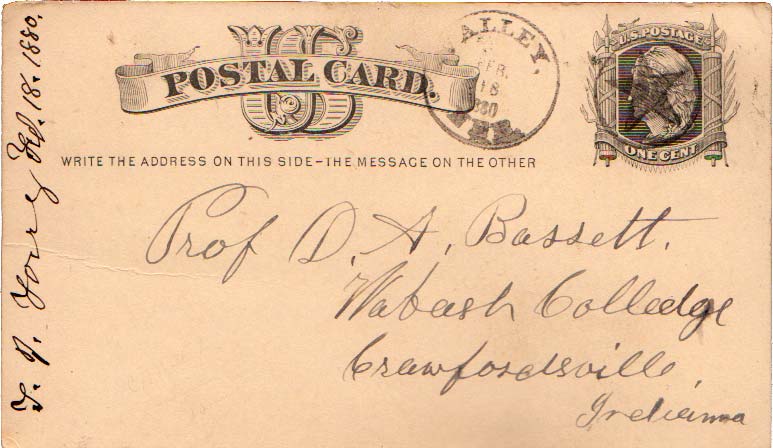 US
POSTAL CARD.
WRITE THE ADDRESS ON THIS SIDE–THE MESSAGE ON THE OTHER
ALLEY,
18
NEB.
U.S. POSTAGE
ONE CENT
Prof D. A. Bassett.
Wabash Colledge
Crawfordsville,
Indiana
Feb. 18. 1880.